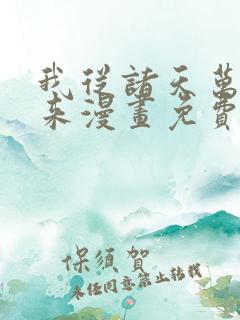 我從諸天萬
来漫畫免費
保須賀
未经同意禁止转载